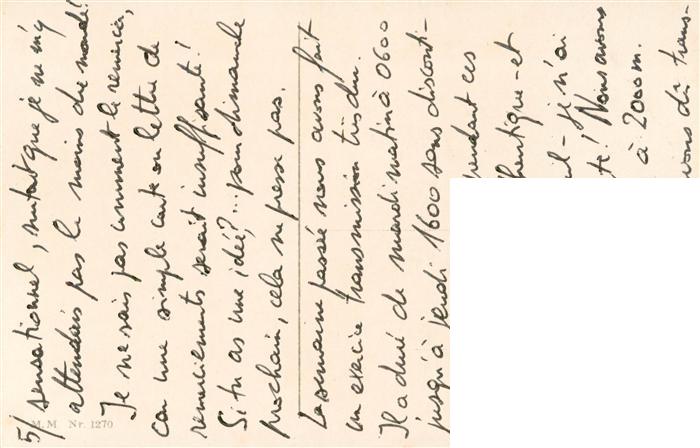 5/ sensationnel, autant que je ne m'y
attendais pas le moins du monde!
Je ne sais pas comment le remercier,
car une simple carte ou lettre de
remerciements serait insuffisante!
Si tu as une idée?... pour dimanche
prochain, cela ne presse pas.
La semaine passée nous avons fait
un exercice transmission très dur.
Il a duré de mardi matin à 0600
jusqu'à jeudi 1600 sans disconti-
pendant ces
thentique - et
- je n'ai
te! Nous avons
à 2000 m.
vons dû trans-
M. M Nr. 1270